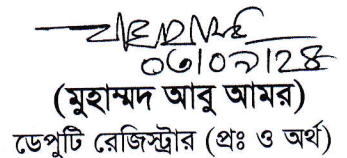 ০৩/০৭/২৪
(মুহাম্মদ আবু আমর)
ডেপুটি রেজিস্ট্রার (প্রঃ ও অর্থ)